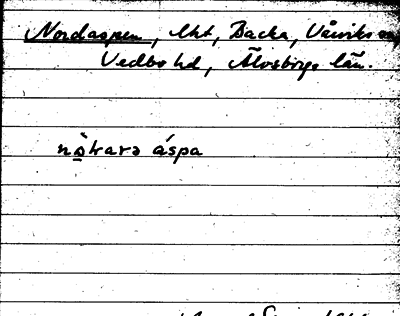 Nordaspen, lht, Backa, Vårviks sn
Vedbo hd, Älvsborgs län.
nòkara áspa